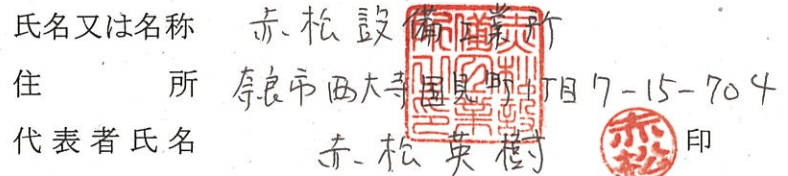 氏名又は名称 赤松設備工業所
住所 奈良市西大寺国見町1丁目7-15-704
代表者氏名 赤松英樹 印
赤松